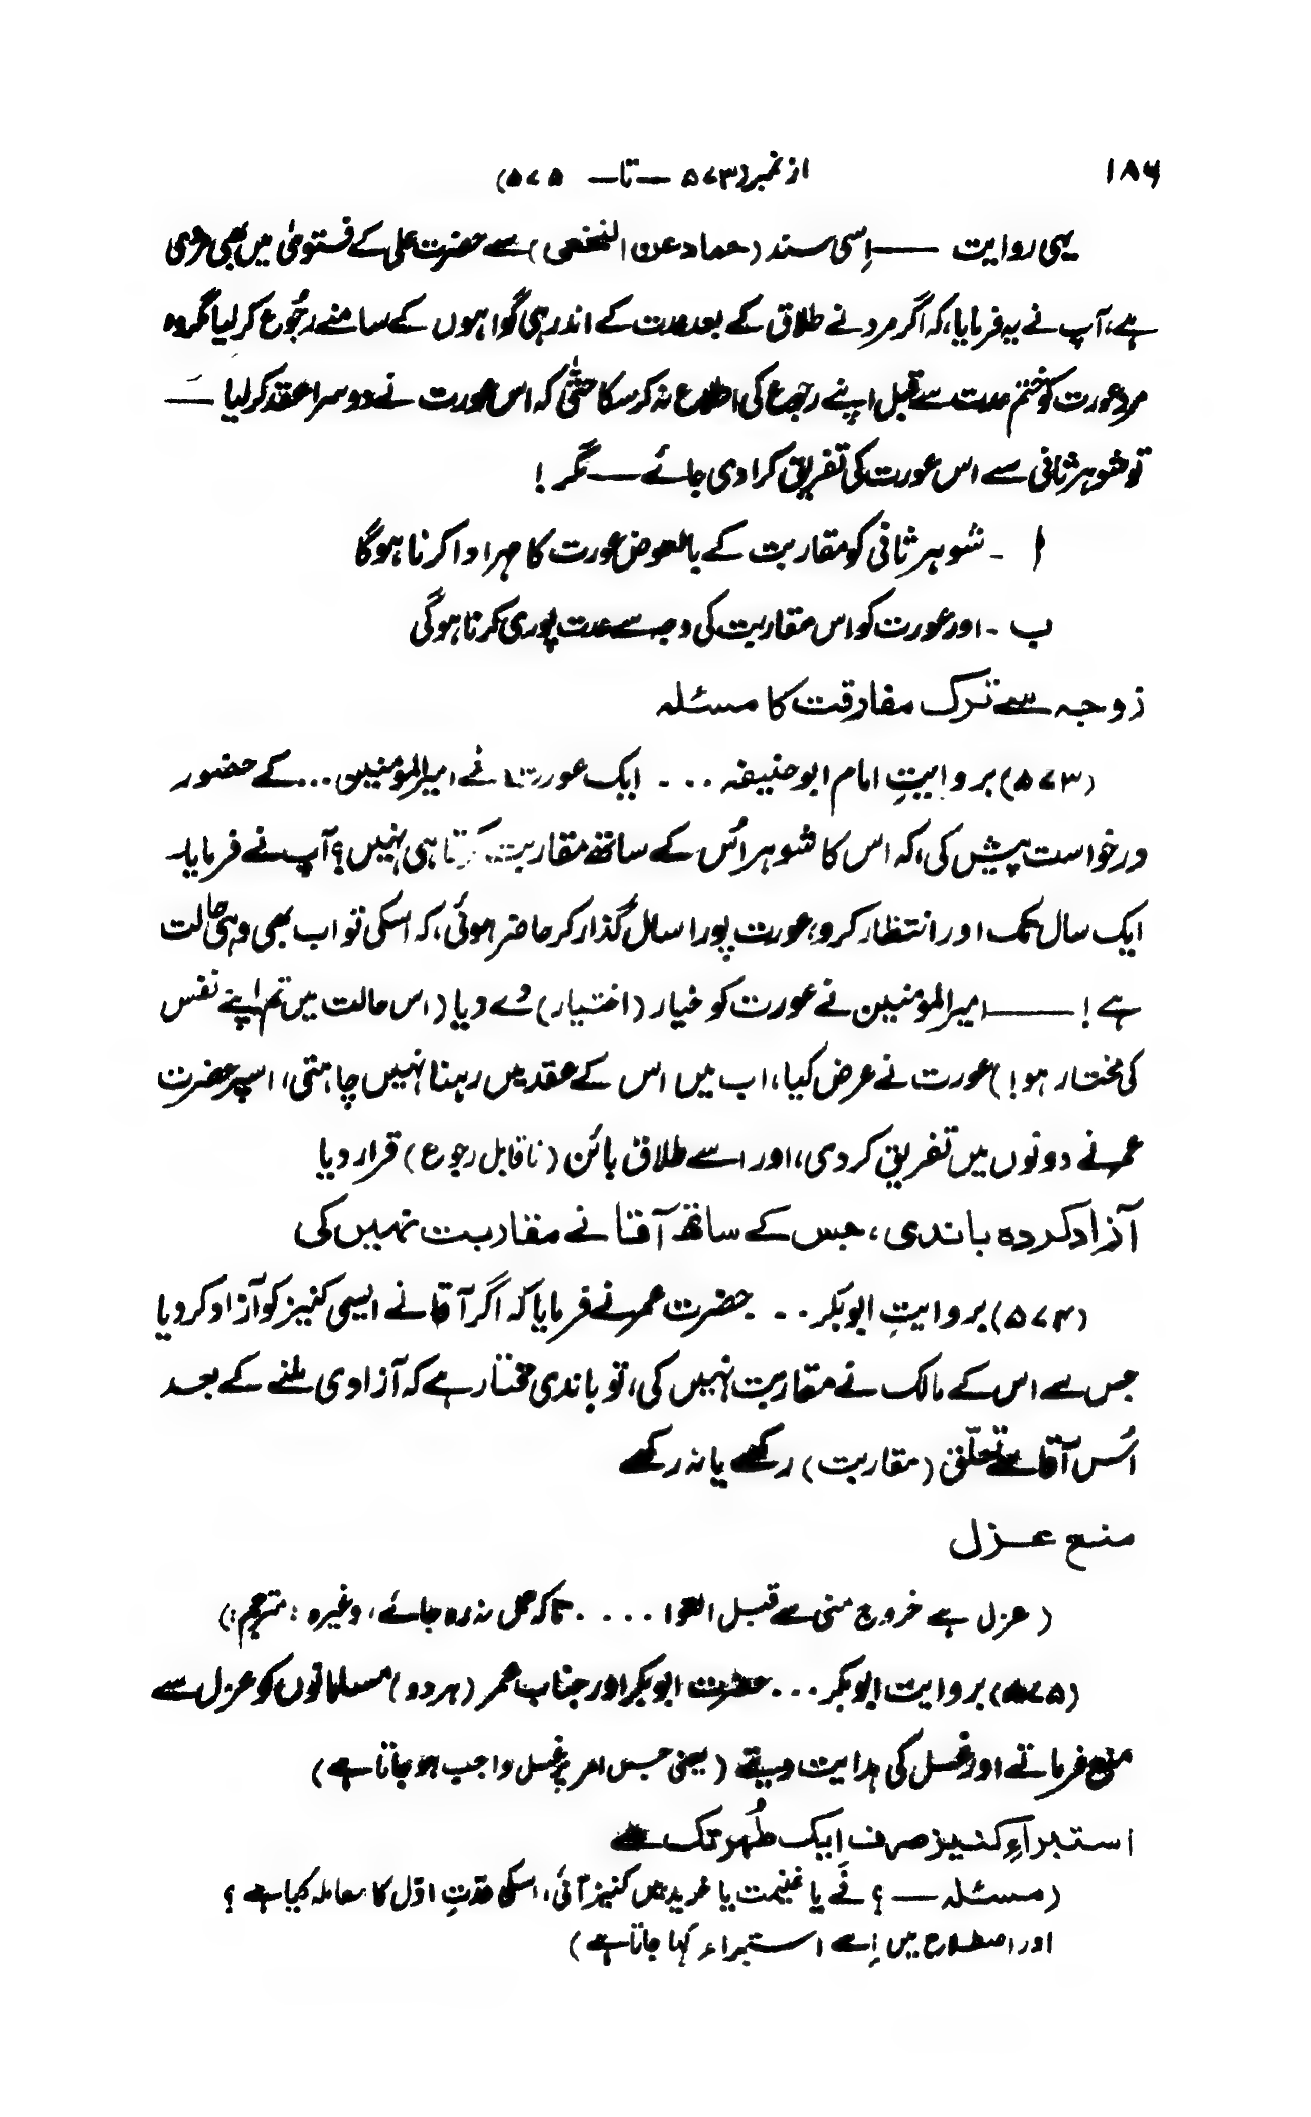 ۱۸۶
از نمبر (۵۷۳ — تا — ۵۷۵)
یہی روایت — اِسی سند (حماد عن النخعی) سے حضرت علی کے فتویٰ میں بھی مروی
ہے، آپ نے یہ فرمایا، کہ اگر مرد نے طلاق کے بعد عدت کے اندر ہی گواہوں کے سامنے رجُوع کر لیا مگر وہ
مرد عورت کو ختم عدت سے قبل اپنے رجوع کی اطلاع نہ کر سکا حتّٰی کہ اس عورت نے دوسرا عقد کر لیا —
تو شوہر ثانی سے اس عورت کی تفریق کرا دی جائے — مگر !
ا - شوہر ثانی کو مقاربت کے بالعوض عورت کا مہر ادا کرنا ہوگا
ب - اور عورت کو اس مقاربت کی وجہ سے عدت پوری کرنا ہوگی
زوجہ سے ترک مفارقت کا مسئلہ
(۵۷۳) بروایتِ امام ابو حنیفہ . . . ایک عورت نے امیرالمؤمنین... کے حضور
درخواست پیش کی، کہ اس کا شوہر اُس کے ساتھ مقاربت کرتا ہی نہیں؟ آپ نے فرمایا۔
ایک سال تک اور انتظار کرو، عورت پورا سال گذار کر حاضر ہوئی، کہ اسکی تو اب بھی وہی حالت
ہے ! — امیرالمؤمنین نے عورت کو خیار (اختیار) دے دیا (اس حالت میں تم اپنے نفس
کی مختار ہو!) عورت نے عرض کیا، اب میں اس کے عقد میں رہنا نہیں چاہتی، اسپر حضرت
عمر نے دونوں میں تفریق کر دی، اور اسے طلاق بائن (ناقابل رجوع) قرار دیا
آزاد کردہ باندی، جس کے ساتھ آقا نے مقاربت نہیں کی
(۵۷۴) بروایتِ ابو بکر . . . حضرت عمر نے فرمایا کہ اگر آقا نے ایسی کنیز کو آزاد کر دیا
جس سے اس کے مالک نے مقاربت نہیں کی، تو باندی مختار ہے کہ آزادی ملنے کے بعد
اُس آقا سے تعلّق (مقاربت) رکھے یا نہ رکھے
منع عزل
( عزل ہے خروج منی سے قبل . . . . تاکہ حمل نہ رہ جائے، وغیرہ : مترجم:)
(۵۷۵) بروایت ابو بکر . . . حضرت ابو بکر اور جناب عمر (ہر دو) مسلمانوں کو عزل سے
منع فرماتے اور غسل کی ہدایت دیتے (یعنی جس امر پر غسل واجب ہو جاتا ہے)
استبراءِ کنیز صرف ایک طُہر تک ہے
(مسئلہ — ؟ فَے یا غنیمت یا خرید میں کنیز آئی، اسکی عدّتِ اوّل کا معاملہ کیا ہے ؟
اور اصطلاح میں اِسے استبراء کہا جاتا ہے)